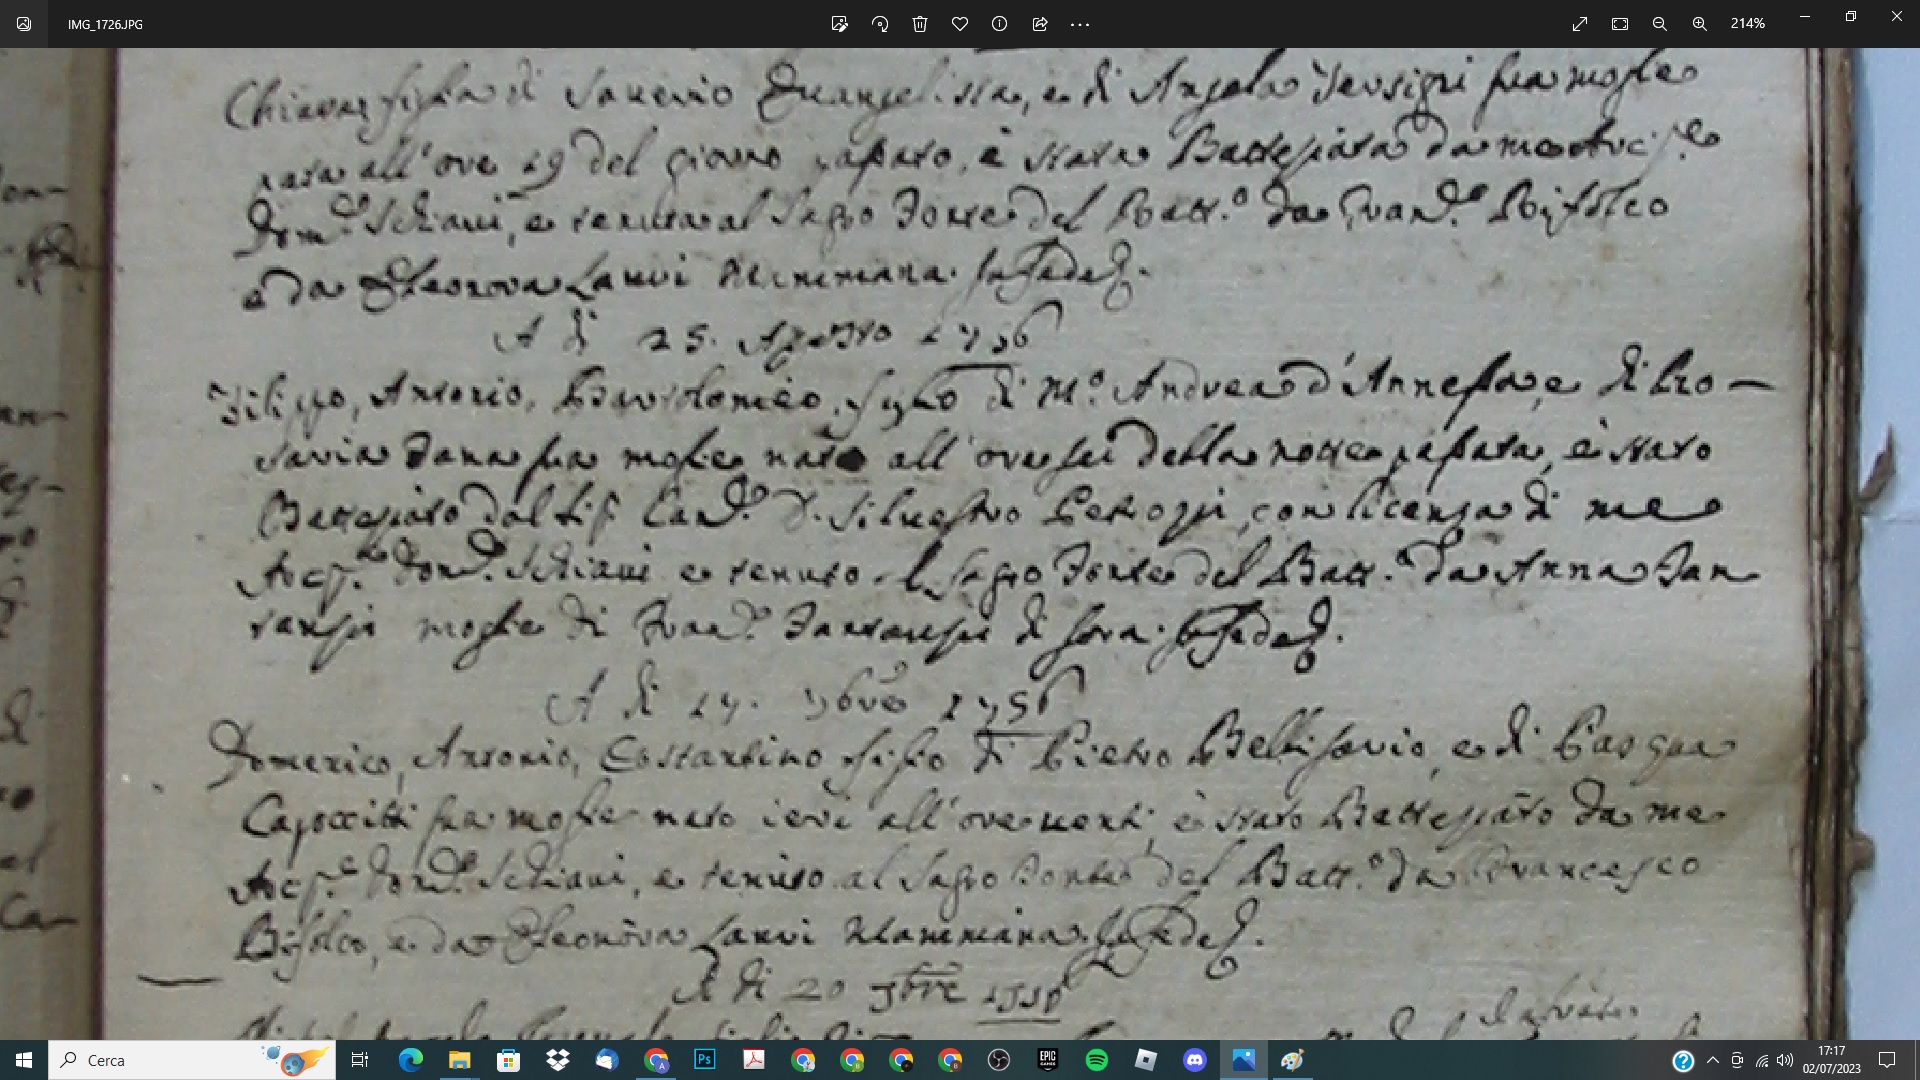 IMG_1726.JPG
214%
Chiara figlia di Saverio Evangelista, e di Angela Tersigni sua moglie
nata all'ore 19 del giorno passato, è stata Battezzata da me Arcip.te
Dom.co Schiavi, e tenuta al Sagro Fonte del Batt.o da Fran.co Bifolco
e da Eleonora Lauri Mammana. In fede
A di 25. Agosto 1756
Filippo, Antonio, Bartolomeo, figlio di M.o Andrea d'Annessa, e di Ro-
savia Fana sua moglie nato all'ore sei della notte passata, è stato
Battezzato dal Sig. Can.co D. Silvestro Petrozzi, con licenza di me
Arcip.te Dom.co Schiavi e tenuto al Sagro Fonte del Batt.o da Anna Tan
moglie di Fran.co di Sora. In fede
A di 17. 7bre 1756
Domenico, Antonio, Costantino figlio di Pietro Bellisario, e di Pasqua
Capoccitti sua moglie nato ieri all'ore venti, è stato Battezzato da me
Arcip.te Dom.co Schiavi, e tenuto al Sagro Fonte del Batt.o da Francesco
Bifolco, e da Eleonora Lauri Mammana. In fede
A di 20 9bre 1756
Cerca
17:17
02/07/2023